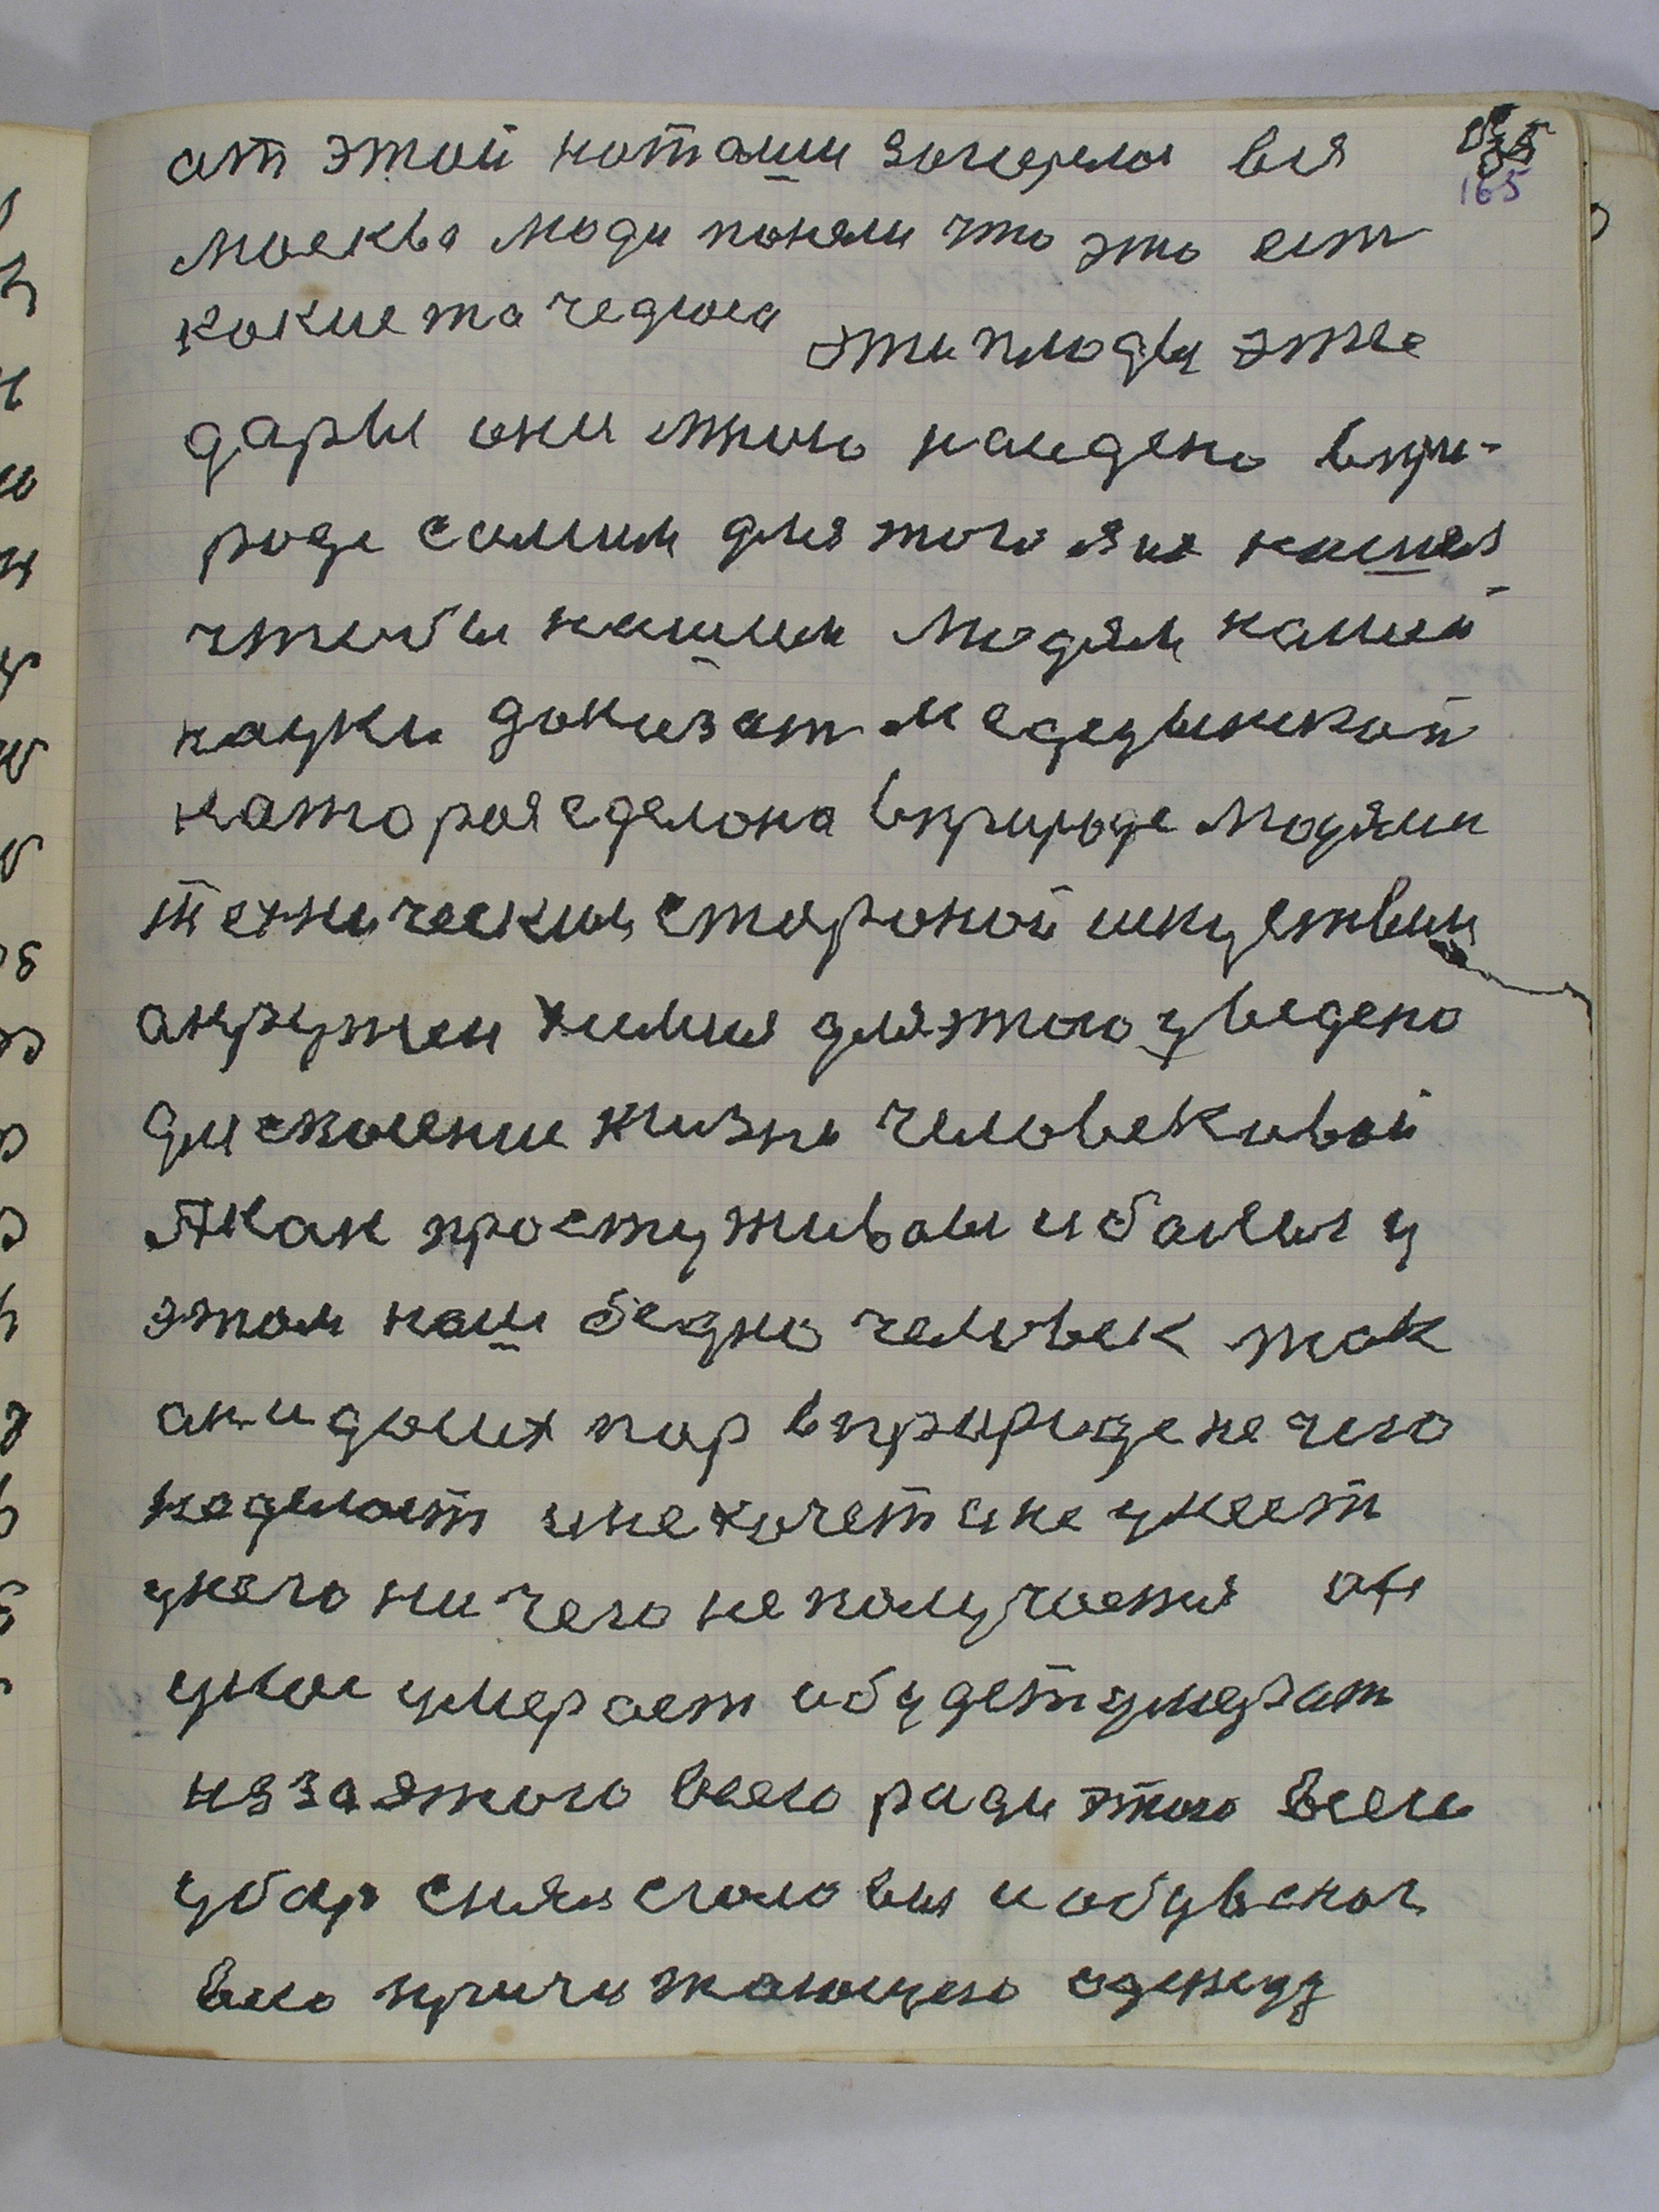 165
ат этой наташи загорела вся
москва люди поняли что это ест
какие та чедюса эти плоды эти
дары они много найдено впри-
роде самим для того яна нашла
чтобы нашим людям нашей
науки доказат медецынской
каторая сделона вприроде людями
технический стороной искуствим
акружен химия для этого уведено
для спасение жизни человековой
Акак простужывалы и балелы у
этом наш бедно человек так
ани досих пор вприроде не чего
неделоет и не хочет и не умеет
унего ни чего не получается он
умое умерает и будет умерат
изза этого всего ради этого всем
убор снял сголовы и обувь сног
всю причитающую одежду